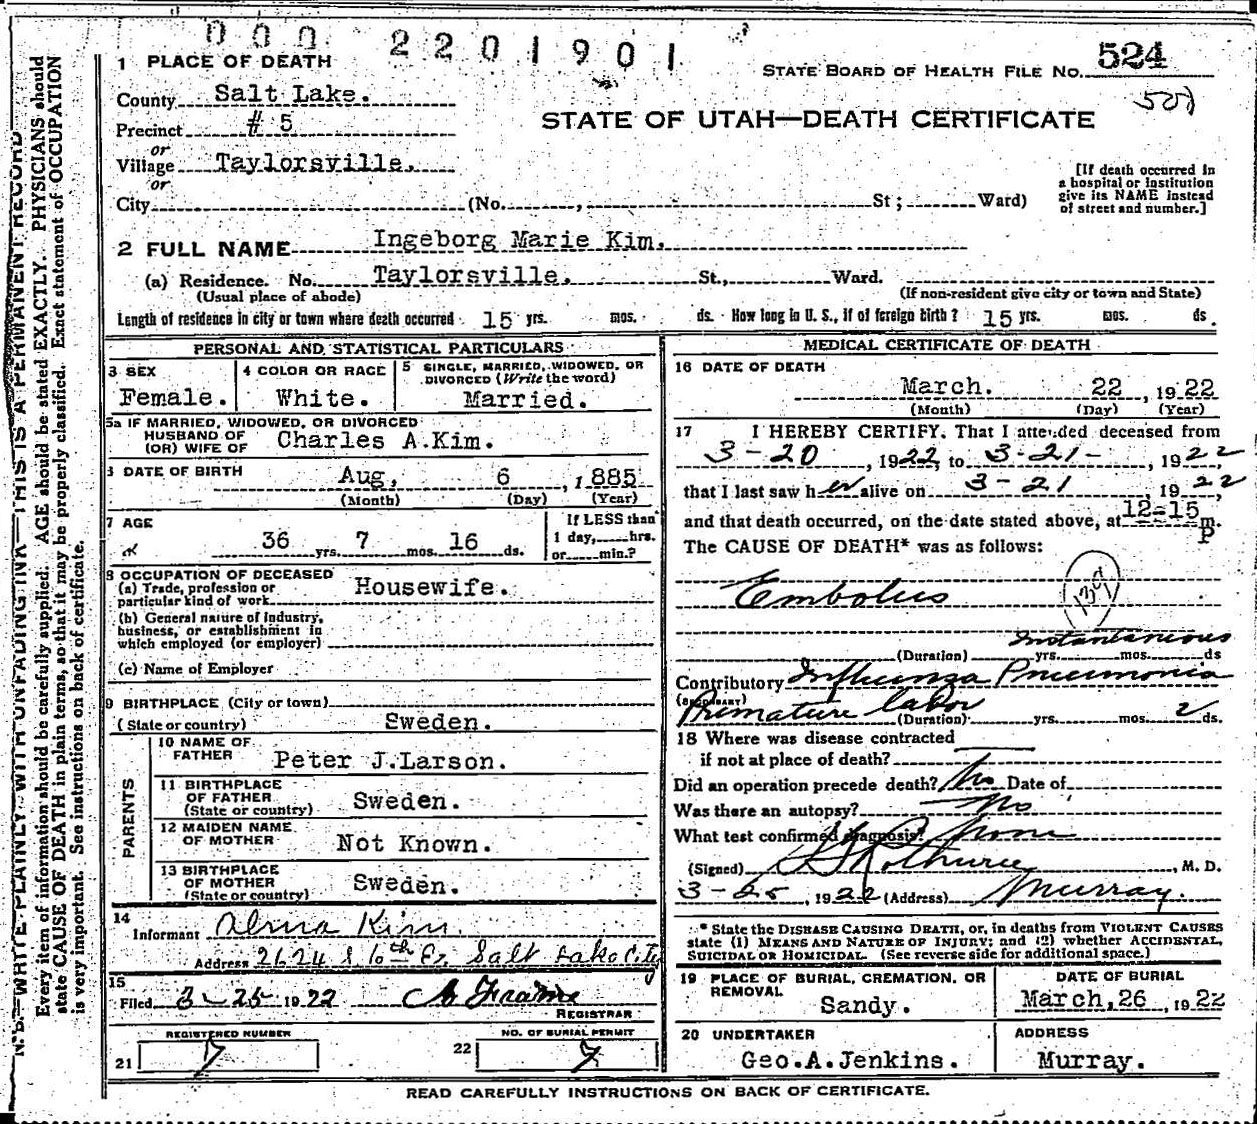 000 2201901
1 PLACE OF DEATH
STATE BOARD OF HEALTH FILE NO. 524
County Salt Lake.
Precinct # 5
STATE OF UTAH—DEATH CERTIFICATE
or
Village Taylorsville.
or
City (No. , St; Ward)
[If death occurred in
a hospital or institution
give its NAME instead
of street and number.]
2 FULL NAME Ingeborg Marie Kim.
(a) Residence. No. Taylorsville. St., Ward.
(Usual place of abode) (If non-resident give city or town and State)
Length of residence in city or town where death occurred 15 yrs. mos. ds. How long in U. S., if of foreign birth? 15 yrs. mos. ds.
PERSONAL AND STATISTICAL PARTICULARS
3 SEX
Female.
4 COLOR OR RACE
White.
5 SINGLE, MARRIED, WIDOWED, OR
DIVORCED (Write the word)
Married.
5a IF MARRIED, WIDOWED, OR DIVORCED
HUSBAND OF
(OR) WIFE OF Charles A.Kim.
6 DATE OF BIRTH
Aug, 6 , 1885
(Month) (Day) (Year)
7 AGE
36 yrs. 7 mos. 16 ds.
If LESS than
1 day, hrs.
or min.?
8 OCCUPATION OF DECEASED
(a) Trade, profession or
particular kind of work Housewife.
(b) General nature of Industry,
business, or establishment in
which employed (or employer)
(c) Name of Employer
9 BIRTHPLACE (City or town)
(State or country) Sweden.
PARENTS
10 NAME OF
FATHER Peter J.Larson.
11 BIRTHPLACE
OF FATHER
(State or country) Sweden.
12 MAIDEN NAME
OF MOTHER Not Known.
13 BIRTHPLACE
OF MOTHER
(State or country) Sweden.
14
Informant Alma Kim.
Address 2624 S 6th E. Salt Lake City
15
Filed 3-25 1922
REGISTRAR
REGISTERED NUMBER
21 7
NO. OF BURIAL PERMIT
22 7
MEDICAL CERTIFICATE OF DEATH
16 DATE OF DEATH
March. 22 , 1922
(Month) (Day) (Year)
17 I HEREBY CERTIFY, That I attended deceased from
3-20 , 1922, to 3-21- , 1922,
that I last saw her alive on 3-21 , 1922
and that death occurred, on the date stated above, at 12-15 P m.
The CAUSE OF DEATH* was as follows:
Embolus
139
Instantaneous
(Duration) yrs. mos. ds
Contributory Influenza Pneumonia
(SECONDARY)
Premature labor
(Duration) yrs. mos. 2 ds.
18 Where was disease contracted
if not at place of death?
Did an operation precede death? No Date of
Was there an autopsy? No
What test confirmed diagnosis? None
(Signed) , M. D.
3-25 , 1922 (Address) Murray.
* State the DISEASE CAUSING DEATH, or, in deaths from VIOLENT CAUSES
state (1) MEANS AND NATURE OF INJURY; and (2) whether ACCIDENTAL,
SUICIDAL OR HOMICIDAL. (See reverse side for additional space.)
19 PLACE OF BURIAL, CREMATION, OR
REMOVAL
Sandy.
DATE OF BURIAL
March,26 , 1922
20 UNDERTAKER
Geo.A.Jenkins.
ADDRESS
Murray.
READ CAREFULLY INSTRUCTIONS ON BACK OF CERTIFICATE.
N. B.—WRITE PLAINLY WITH UNFADING INK—THIS IS A PERMANENT RECORD
Every item of information should be carefully supplied. AGE should be stated EXACTLY. PHYSICIANS should
state CAUSE OF DEATH in plain terms, so that it may be properly classified. Exact statement of OCCUPATION
is very important. See instructions on back of certificate.